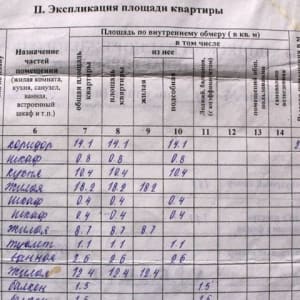 II. Экспликация площади квартиры
Назначение частей помещения (жилая комната, кухня, санузел, ванная, встроенный шкаф и т.п.)
Площадь по внутреннему обмеру (в кв. м)
в том числе
из нее
общая площадь квартиры
площадь квартиры
жилая
подсобная
6 7 8 9 10 11 12 13 14
коридор 14.1 14.1 14.1
шкаф 0.8 0.8 0.8
кухня 10.4 10.4 10.4
жилая 18.2 18.2 18.2
шкаф 0.4 0.4 0.4
шкаф 0.4 0.4 0.4
жилая 8.7 8.7 8.7
туалет 1.1 1.1 1.1
ванная 2.6 2.6 2.6
жилая 12.4 12.4 12.4
балкон 1.5 1.5
балкон 1.5 1.5